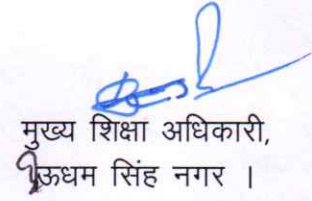 मुख्य शिक्षा अधिकारी,
ऊधम सिंह नगर ।